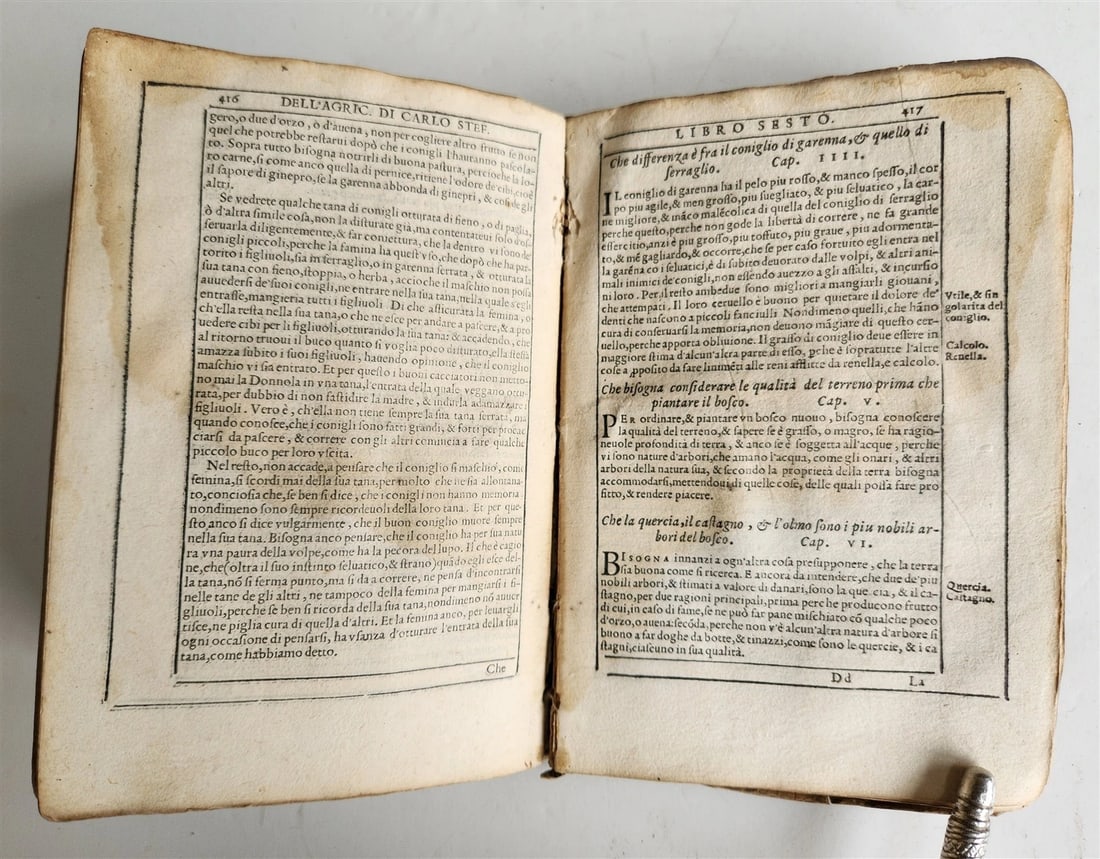 416
DELL'AGRIC. DI CARLO STEF.
gero, o due d'orzo, ò d'auena, non per cogliere altro frutto se non
quel che potrebbe restarui dopò che i conigli l'hauranno pascola-
to. Sopra tutto bisogna notrirli di buona pastura, percioche la lo-
ro carne, si come anco quella di pernice, ritiene l'odore de'cibi, cioè
il sapore di ginepro, se la garenna abbonda di ginepri, & cosi de gli
altri.
Se vedrete qualche tana di conigli otturata di fieno, o di paglia,
ò d'altra simile cosa, non la disturate già, ma contentateui solo d'os-
seruarla diligentemente, & far conuettura, che la dentro vi sono de'
conigli piccoli, perche la famina ha quest'vso, che dopò che ha par-
torito i figliuoli, sia in serraglio, o in garenna serrata, & otturata la
sua tana con fieno, stoppia, o herba, accioche il maschio non possa
auuedersi de'suoi conigli, ne entrare nella sua tana, nella quale s'egli
entrasse, mangieria tutti i figliuoli. Di che assicurata la femina, o
ch'ella resta nella sua tana, o che ne esce per andare a pascere, & a pro
uedere cibi per li figliuoli, otturando la sua tana: & accadendo, che
al ritorno truoui il buco quanto si voglia poco disturato, ella stessa
amazza subito i suoi figliuoli, hauendo opinione, che il coniglio
maschio vi sia entrato. Et per questo i buoni cacciatori non metto-
no mai la Donnola in vna tana, l'entrata della quale veggano ottu-
rata, per dubbio di non fastidire la madre, & indurla adamazzare i
figliuoli. Vero è, ch'ella non tiene sempre la sua tana serrata, ma
quando conosce, che i conigli sono fatti grandi, & forti per procac
ciarsi da pascere, & correre con gli altri comincia a fare qualche
piccolo buco per loro vscita.
Nel resto, non accade, a pensare che il coniglio sì maschio, come
femina, si scordi mai della sua tana, per molto che ne sia allontana-
to, conciosia che, se ben si dice, che i conigli non hanno memoria
nondimeno sono sempre ricordeuoli della loro tana. Et per que-
sto, anco si dice vulgarmente, che il buon coniglio muore sempre
nella sua tana. Bisogna anco pensare, che il coniglio ha per sua natu
ra vna paura della volpe, come ha la pecora del lupo. Il che è cagio
ne, che (oltra il suo instinto seluatico, & strano) quãdo egli esce del-
la tana, nõ si ferma punto, ma si da a correre, ne pensa d'incontrarsi
nelle tane de gli altri, ne tampoco della femina per mangiarsi i fi-
gliuoli, perche se ben si ricorda della sua tana, nondimeno nõ auuer
tisce, ne piglia cura di quella d'altri. Et la femina anco, per leuargli
ogni occasione di pensarsi, ha vsanza d'otturare l'entrata della sua
tana, come habbiamo detto.
Che
LIBRO SESTO.
417
Che differenza è fra il coniglio di garenna, & quello di
serraglio. Cap. IIII.
IL coniglio di garenna ha il pelo piu rosso, & manco spesso, il cor
po piu agile, & men grosso, piu suegliato, & piu seluatico, la car-
ne migliore, & mãco malẽcolica di quella del coniglio di serraglio
perche questo, perche non gode la libertà di correre, ne fa grande
essercitio, anzi è piu grosso, piu toffuto, piu graue, piu adormenta-
to, & mẽ gagliardo, & occorre, che se per caso fortuito egli entra nel
la garẽna co i seluatici, è di subito deuorato dalle volpi, & altri ani-
mali inimici de conigli, non essendo auezzo a gli assalti, & incursio
ni loro. Per, il resto ambedue sono migliori a mangiarli giouani,
che attempati. Il loro ceruello è buono per quietare il dolore de'
denti che nascono a piccoli fanciulli. Nondimeno quelli, che hãno
cura di conseruarsi la memoria, non deuono mãgiare di questo cer-
uello, perche apporta obliuione. Il grasso di coniglio deue essere in
maggiore stima d'alcun'altra parte di esso, pche è sopratutte l'altre
cose a pposito da fare linimẽti alle reni afflitte da renella, e calcolo.
Vtile, & sin
golarita del
coniglio.
Calcolo.
Renella.
Che bisogna considerare le qualità del terreno prima che
piantare il bosco. Cap. V.
PER ordinare, & piantare vn bosco nuouo, bisogna conoscere
la qualità del terreno, & sapere se è grasso, o magro, se ha ragio-
neuole profondità di terra, & anco se è soggetta all'acque, perche
vi sono nature d'arbori, che amano l'acqua, come gli onari, & altri
arbori della natura sua, & secondo la proprietà della terra bisogna
accommodarsi, mettendoui di quelle cose, delle quali possa fare pro
fitto, & rendere piacere.
Che la quercia, il castagno, & l'olmo sono i piu nobili ar-
bori del bosco. Cap. VI.
BISOGNA innanzi a ogn'altra cosa presupponere, che la terra
sia buona come si ricerca. E ancora da intendere, che due de'piu
nobili arbori, & stimati a valore di danari, sono la quercia, & il ca-
stagno, per due ragioni principali, prima perche producono frutto
di cui, in caso di fame, se ne può far pane mischiato cõ qualche poco
d'orzo, o auena: secõda, perche non v'è alcun'altra natura d'arbore sì
buono a far doghe da botte, & tinazzi, come sono le quercie, & i ca
stagni, ciascuno in sua qualità.
Quercia.
Castagno.
Dd
La